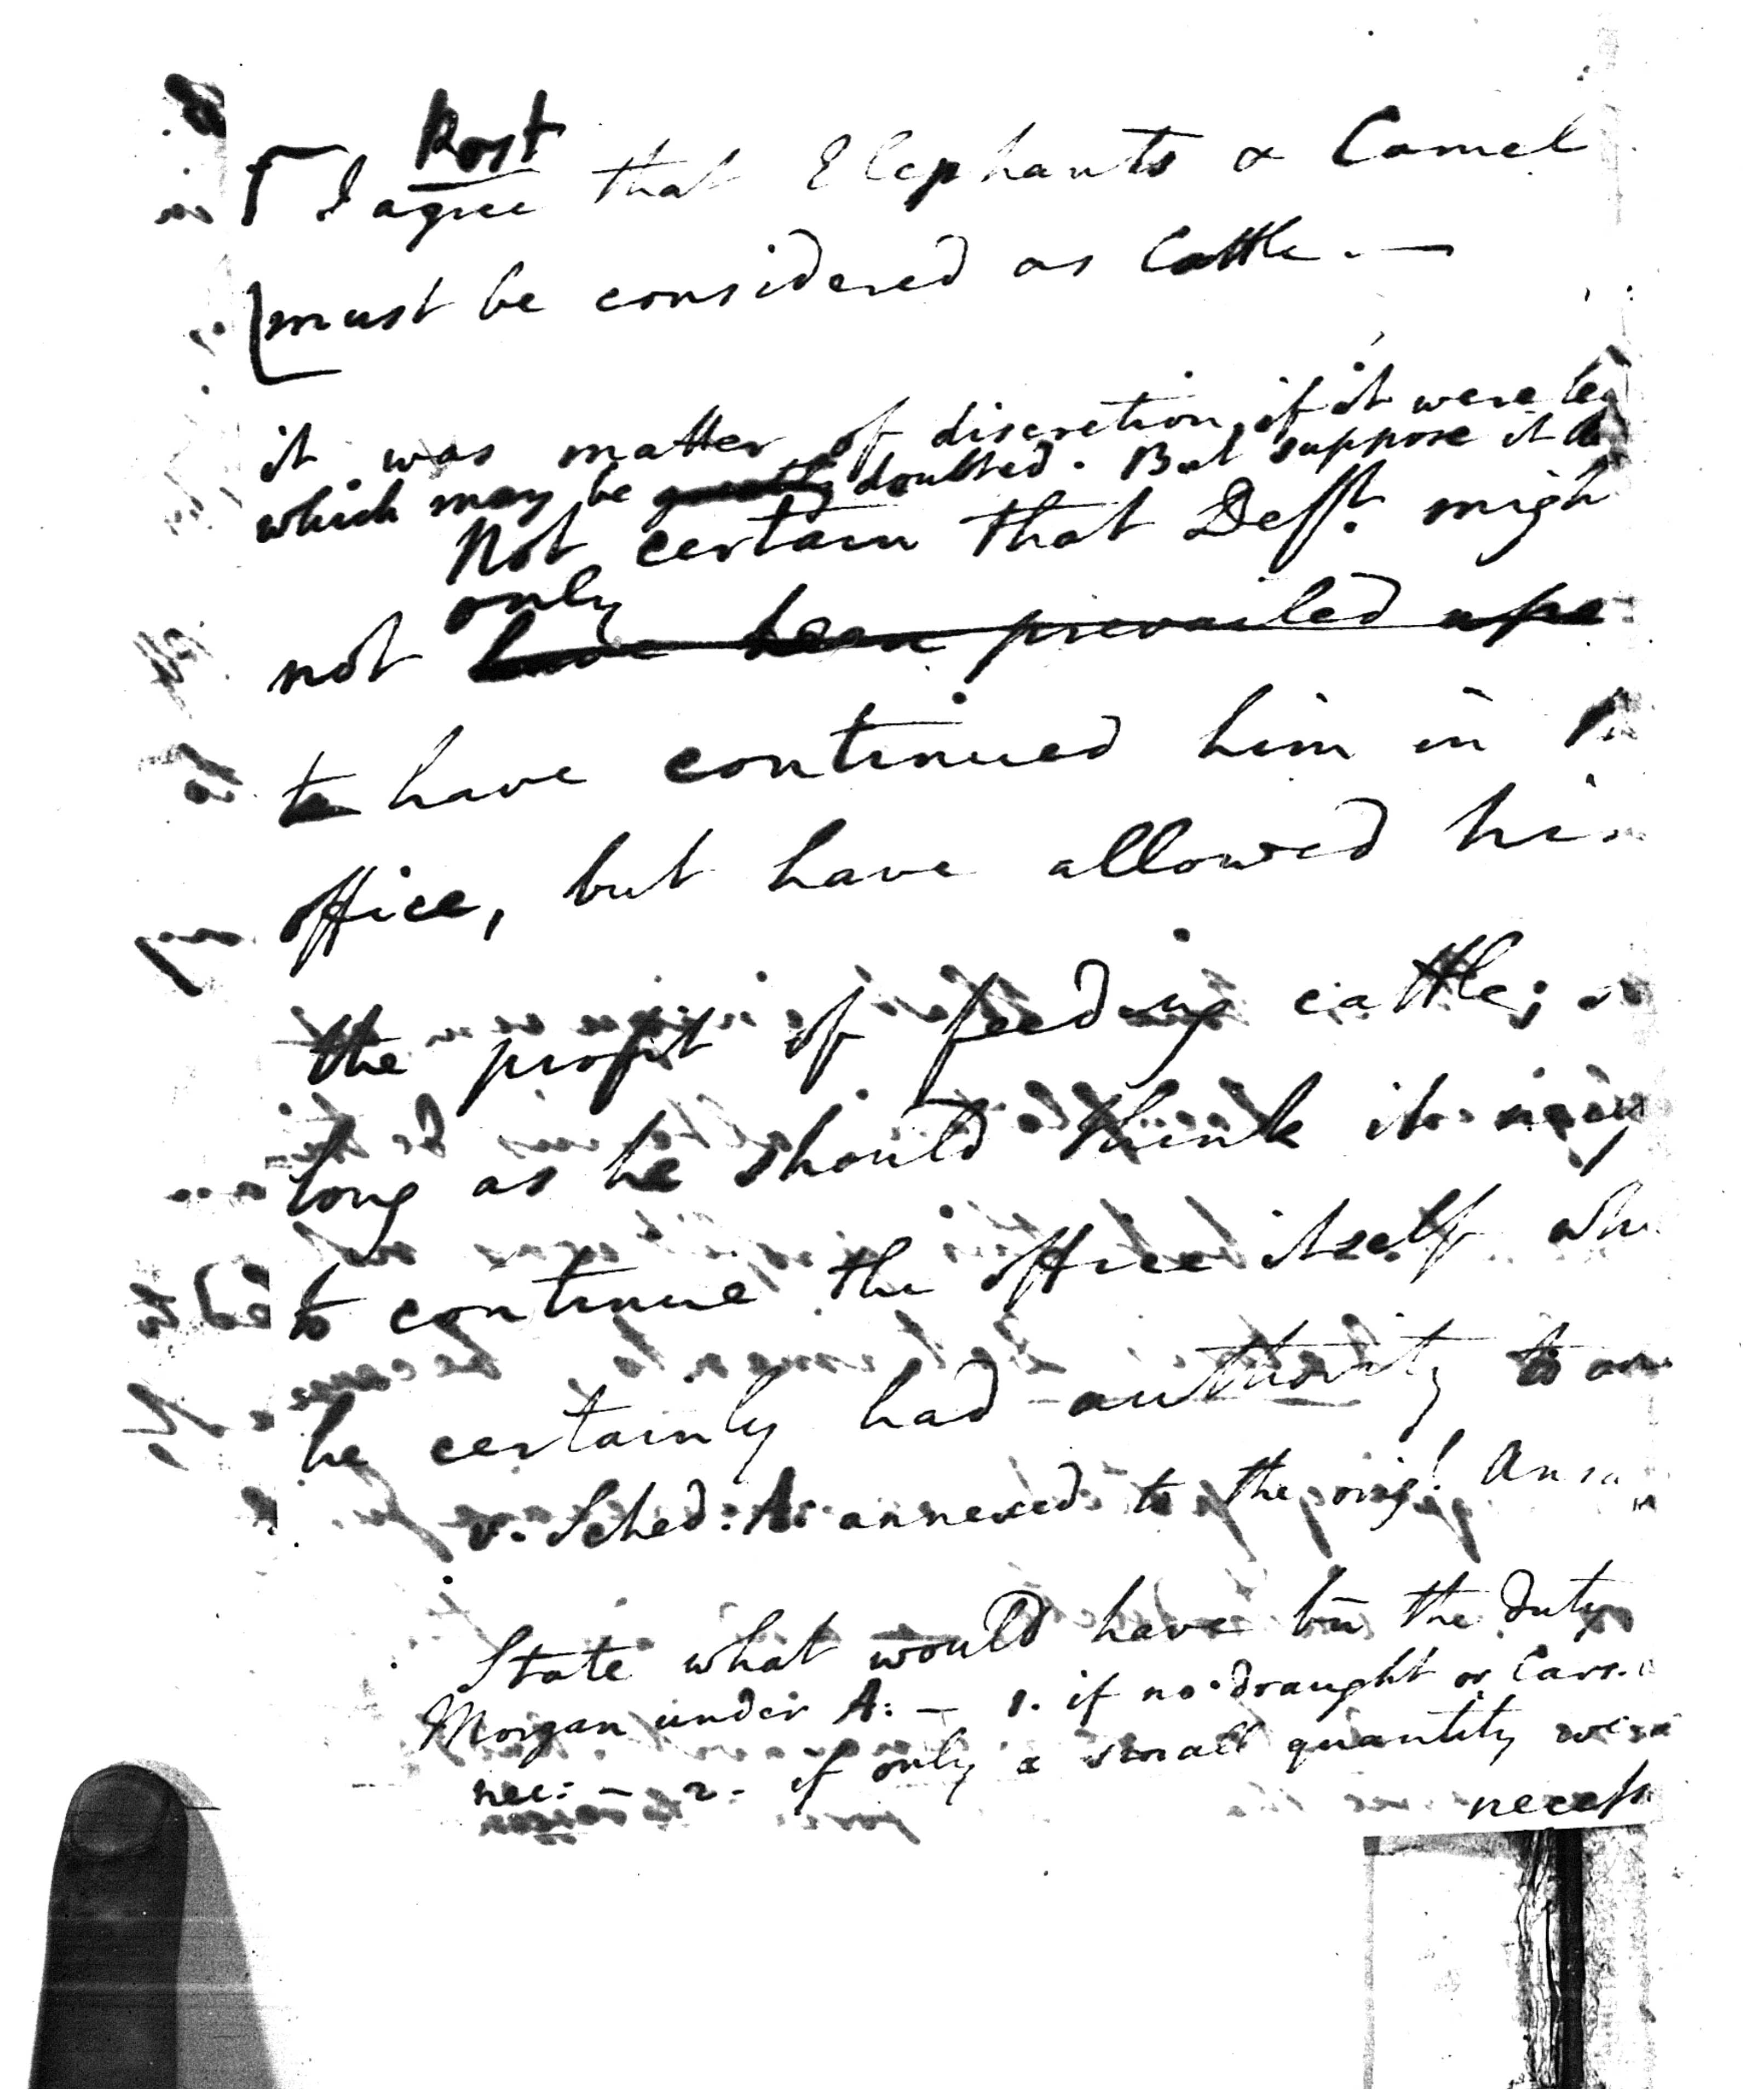 Post
I agree that Elephants & Camel
must be considered as Cattle. —
it was matter of discretion, if it were
which may be doubted. But suppose it
Not certain that Defft. migh
only
not have been prevailed upo
to have continued him in
office, but have allowed him
the profit of feeding cattle;
long as he should think it
to continue the office itself
he certainly had authority to
v. Sched: A: annexed to the orig! Ans
State what would have bn the duty
Morgan under A: — 1. if no draught or Carr.
nec: — 2. if only a small quantity were
necess